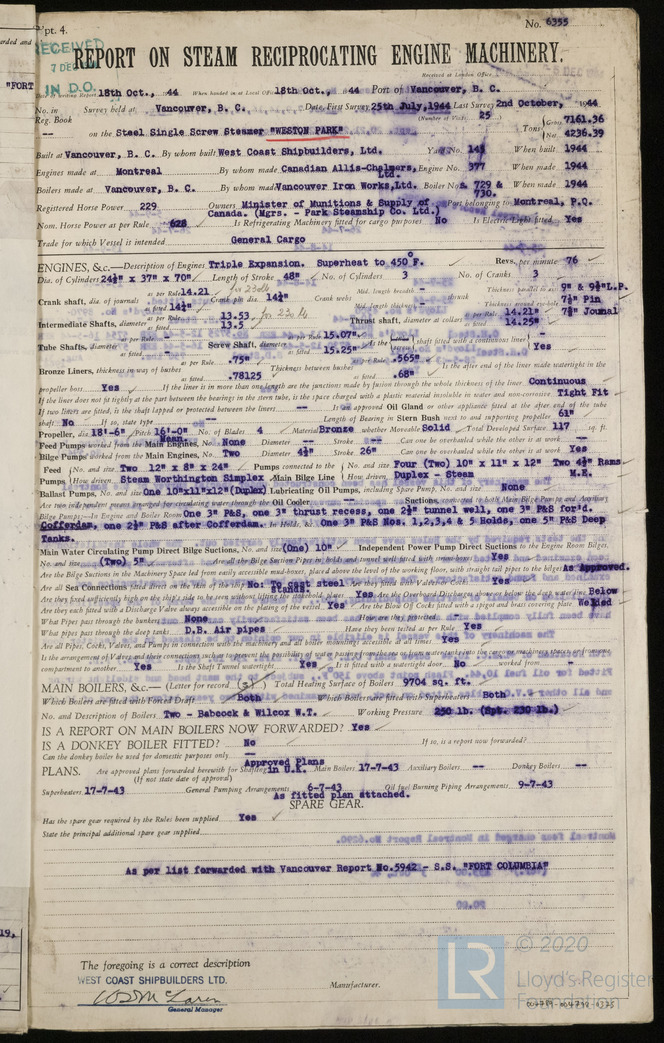 Rpt. 4.
No. 6355
RECEIVED
7 DEC
IN D.O.
REPORT ON STEAM RECIPROCATING ENGINE MACHINERY.
Received at London Office
18th Oct., 1944 When handed in at Local Office 18th Oct., 1944 Port of Vancouver, B. C.
No. in Survey held at Vancouver, B. C. Date, First Survey 25th July, 1944 Last Survey 2nd October, 1944
Reg. Book (Number of Visits 25
on the Steel Single Screw Steamer "WESTON PARK" Tons Gross 7161.36
Net 4236.39
Built at Vancouver, B. C. By whom built West Coast Shipbuilders, Ltd. Yard No. 149 When built 1944
Engines made at Montreal By whom made Canadian Allis-Chalmers, Ltd. Engine No. 377 When made 1944
Boilers made at Vancouver, B. C. By whom made Vancouver Iron Works, Ltd. Boiler Nos. 729 & 730. When made 1944
Registered Horse Power 229 Owners Minister of Munitions & Supply of Canada. (Mgrs. - Park Steamship Co. Ltd.) Port belonging to Montreal, P.Q.
Nom. Horse Power as per Rule 628 Is Refrigerating Machinery fitted for cargo purposes No Is Electric Light fitted Yes
Trade for which Vessel is intended General Cargo
ENGINES, &c.—Description of Engines Triple Expansion. Superheat to 450°F. Revs. per minute 76
Dia. of Cylinders 24½" x 37" x 70" Length of Stroke 48" No. of Cylinders 3 No. of Cranks 3
Crank shaft, dia. of journals as per Rule 14.21 as fitted 14¼" Crank pin dia. 14¼" Crank webs Mid. length breadth -- Mid. length thickness -- shrunk Thickness parallel to axis 9" & 9¼"L.P.
7⅝" Pin
7⅝" Jounal
Intermediate Shafts, diameter as per Rule 13.53 as fitted 13.5 Thrust shaft, diameter at collars as per Rule 14.21" as fitted 14.25"
Tube Shafts, diameter Screw Shaft, diameter as per Rule 15.07" as fitted 15.25" shaft fitted with a continuous liner Yes
Bronze Liners, thickness in way of bushes as per Rule .75" as fitted .78125 Thickness between bushes as per Rule .565" as fitted .68" Is the after end of the liner made watertight in the
propeller boss Yes If the liner is in more than one length are the junctions made by fusion through the whole thickness of the liner Continuous
If the liner does not fit tightly at the part between the bearings in the stern tube, is the space charged with a plastic material insoluble in water and non-corrosive Tight Fit
If two liners are fitted, is the shaft lapped or protected between the liners -- Is an approved Oil Gland or other appliance fitted at the after end of the tube
shaft No If so, state type -- Length of Bearing in Stern Bush next to and supporting propeller 61"
Propeller, dia 18'-6" Pitch 16'-0" Mean. No. of Blades 4 Material Bronze whether Moveable Solid Total Developed Surface 117 sq. ft.
Feed Pumps worked from the Main Engines, No. None Diameter -- Stroke -- Can one be overhauled while the other is at work --
Bilge Pumps worked from the Main Engines, No. Two Diameter 4¼" Stroke 26" Can one be overhauled while the other is at work Yes
Feed Pumps No. and size Two 12" x 8" x 24" Pumps connected to the Main Bilge Line No. and size Four (Two) 10" x 11" x 12" Two 4¼" Rams
How driven Steam Worthington Simplex How driven Duplex - Steam M.E.
Ballast Pumps, No. and size One 10"x11"x12"(Duplex) Lubricating Oil Pumps, including Spare Pump, No. and size None
Are two independent means arranged for circulating water through the Oil Cooler -- Suctions, connected to both Main Bilge Pumps and Auxiliary
Bilge Pumps:—In Engine and Boiler Room One 3" P&S, one 3" thrust recess, one 2½" tunnel well, one 3" P&S for'd.
Cofferdam, one 2½" P&S after Cofferdam. In Holds, &c. One 3" P&S Nos. 1,2,3,4 & 5 Holds, one 5" P&S Deep
Tanks.
Main Water Circulating Pump Direct Bilge Suctions, No. and size (One) 10" Independent Power Pump Direct Suctions to the Engine Room Bilges,
No. and size (Two) 5" Are all the Bilge Suction Pipes in holds and tunnel well fitted with strum-boxes Yes
Are the Bilge Suctions in the Machinery Space led from easily accessible mud-boxes, placed above the level of the working floor, with straight tail pipes to the bilges As Approved.
Are all Sea Connections No: To cast steel stands. Are they fitted with Valves Yes
Are they fixed sufficiently high on the ship's side to be seen without lifting the stokehold plates Yes Are the Overboard Discharges above or below the deep water line Below
Are they each fitted with a Discharge Valve always accessible on the plating of the vessel Yes Are the Blow Off Cocks fitted with a spigot and brass covering plate Welded
What Pipes pass through the bunkers None How are they protected
What pipes pass through the deep tanks D.B. Air pipes Have they been tested as per Rule Yes
Are all Pipes, Cocks, Valves, and Pumps in connection with the machinery and all boiler mountings accessible at all times Yes
compartment to another Yes Is the Shaft Tunnel watertight Yes Is it fitted with a watertight door No worked from --
MAIN BOILERS, &c.—(Letter for record (S)) Total Heating Surface of Boilers 9704 sq. ft.
Which Boilers are fitted with Forced Draft Both Which Boilers are fitted with Superheaters Both
No. and Description of Boilers Two - Babcock & Wilcox W.T. Working Pressure 250 lb. (Spt. 230 lb.)
IS A REPORT ON MAIN BOILERS NOW FORWARDED? Yes
IS A DONKEY BOILER FITTED? No If so, is a report now forwarded?
Can the donkey boiler be used for domestic purposes only --
PLANS. Are approved plans forwarded herewith for Shafting Approved Plans in U.K. Main Boilers 17-7-43 Auxiliary Boilers -- Donkey Boilers --
(If not state date of approval)
Superheaters 17-7-43 General Pumping Arrangements 6-7-43 Oil fuel Burning Piping Arrangements 9-7-43
As fitted plan attached.
SPARE GEAR.
Has the spare gear required by the Rules been supplied Yes
State the principal additional spare gear supplied
As per list forwarded with Vancouver Report No.5942 - S.S. "FORT COLUMBIA"
The foregoing is a correct description
WEST COAST SHIPBUILDERS LTD.
Manufacturer.
General Manager
© 2020
Lloyd's Register
Foundation